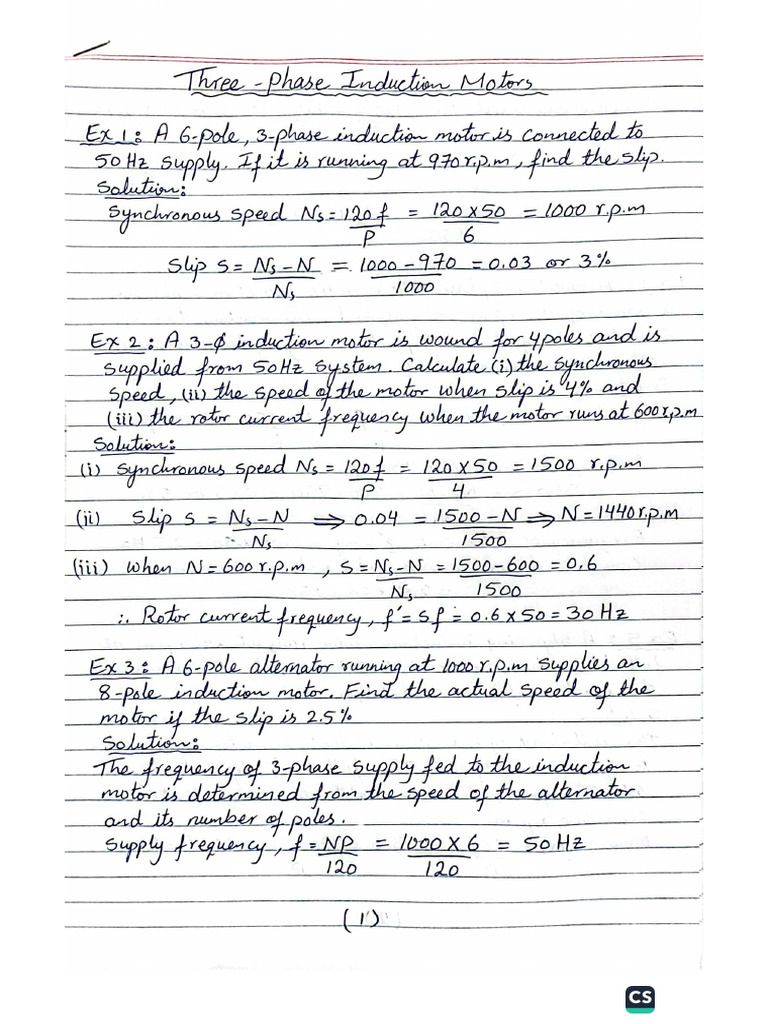 Three-Phase Induction Motors
Ex 1: A 6-pole, 3-phase induction motor is connected to
50Hz supply. If it is running at 970 r.p.m, find the slip.
Solution:
Synchronous speed Ns = 120f/P = 120×50/6 = 1000 r.p.m
Slip S = Ns-N/Ns = 1000-970/1000 = 0.03 or 3%
Ex 2: A 3-ϕ induction motor is wound for 4 poles and is
supplied from 50Hz system. Calculate (i) the synchronous
speed, (ii) the speed of the motor when slip is 4% and
(iii) the rotor current frequency when the motor runs at 600 r.p.m
Solution:
(i) Synchronous speed Ns = 120f/P = 120×50/4 = 1500 r.p.m
(ii) Slip s = Ns-N/Ns ⇒ 0.04 = 1500-N/1500 ⇒ N=1440 r.p.m
(iii) when N=600 r.p.m, S = Ns-N/Ns = 1500-600/1500 = 0.6
∴ Rotor current frequency, f' = sf = 0.6×50 = 30 Hz
Ex 3: A 6-pole alternator running at 1000 r.p.m supplies an
8-pole induction motor. Find the actual speed of the
motor if the slip is 2.5%
Solution:
The frequency of 3-phase supply fed to the induction
motor is determined from the speed of the alternator
and its number of poles.
Supply frequency, f = NP/120 = 1000×6/120 = 50 Hz
(1)
CS